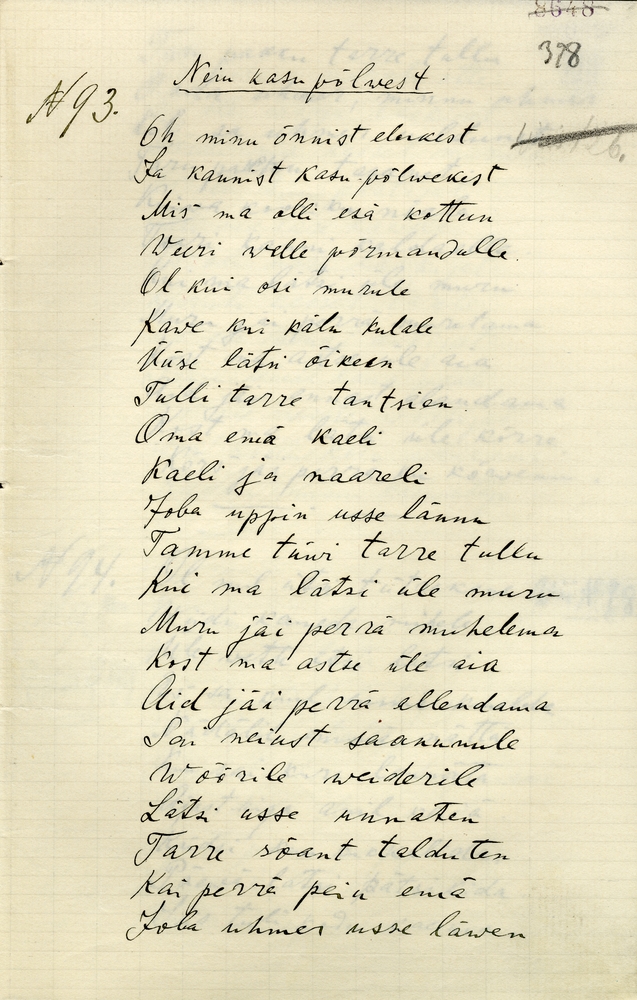 8648
378
Neiu kasu põlwest
N 93.
Oh minu õnnist elukest
Ja kaunist kasu-põlwekest
Mis ma olli esä kottun
Weeri welle põrmandulle.
Ol kui osi murule
Kawe kui kälu kulale
Üüse lätsi õikeen
Tulli tarre tantsien.
Oma emä kaeli
Kaeli ja naareli
Joba uppin usse lännu
Tamme tüwi tarre tullu
Kui ma lätsi üle muru
Muru jäi perrä muhelema
Kost ma astse üle aia
Aid jäi perrä allendama
Sai neiust saanumule
Wöörile weiderile
Lätsi usse unnaten
Tarre sõant talduten
Kai perrä peiu emä
Joba uhmer usse läwen